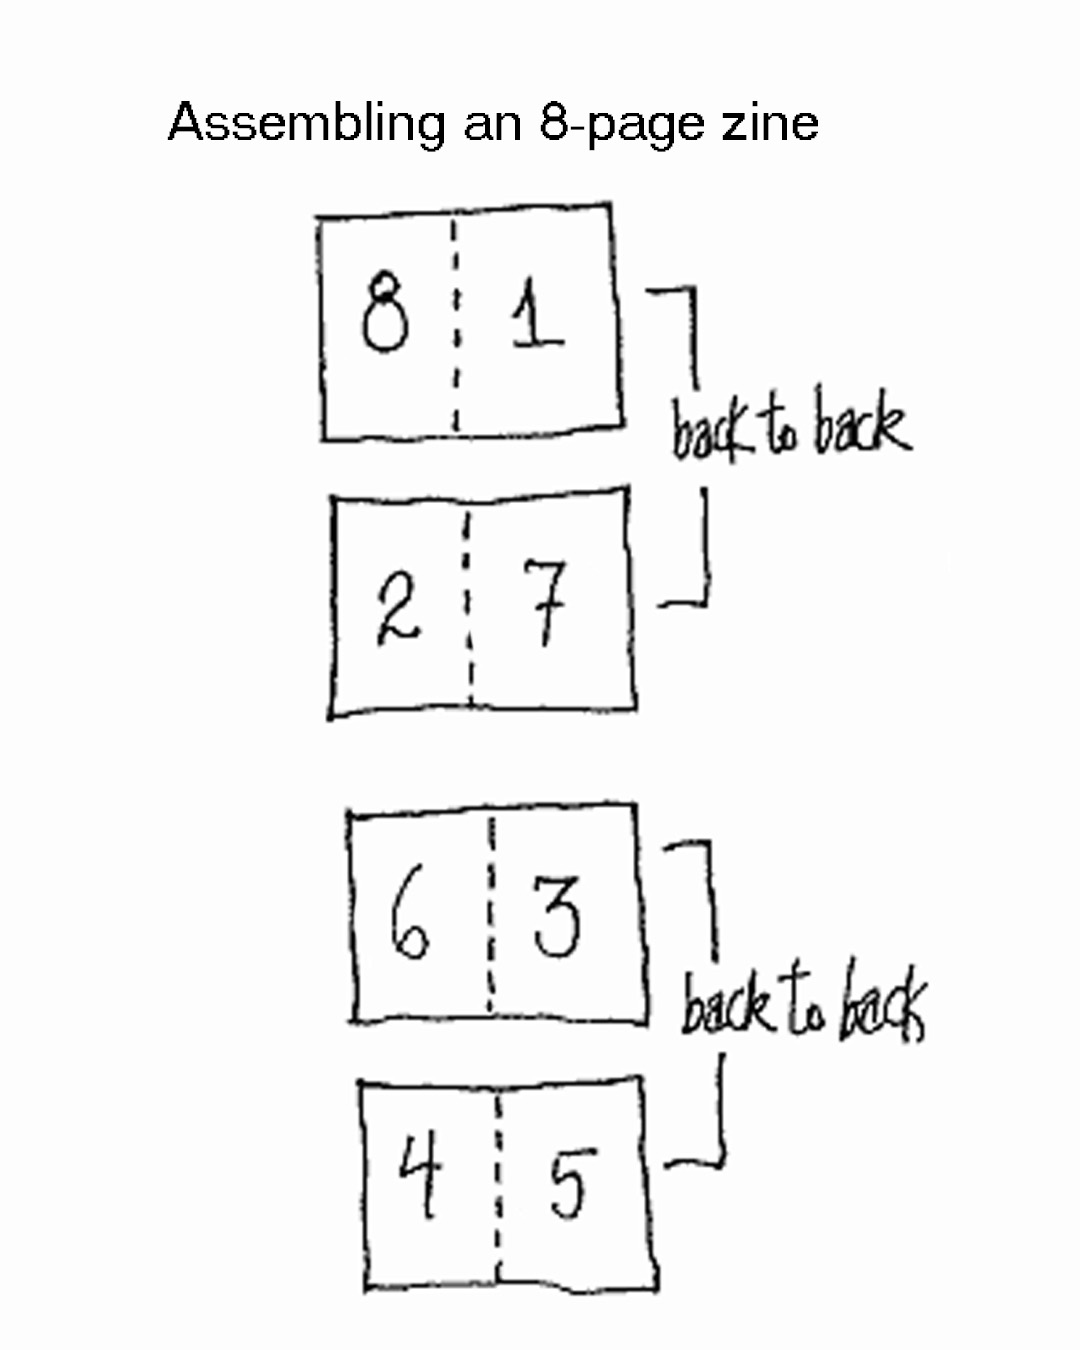 Assembling an 8-page zine
8 1
back to back
2 7
6 3
back to back
4 5